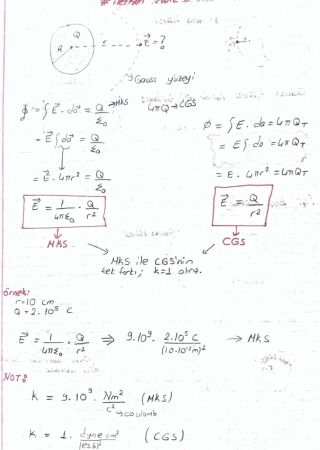 R r E = ?
Gauss yüzeyi
∮ = ∫ E⃗ . da⃗ = Q/ε₀ → MKS
4πQ → CGS
= E⃗ ∫ da⃗ = Q/ε₀
= E⃗ . 4πr² = Q/ε₀
E⃗ = 1/4πε₀ . Q/r²
MKS
φ = ∫ E . da = 4πQ_T
= E ∫ da = 4πQ_T
= E . 4πr² = 4πQ_T
E⃗ = Q/r²
CGS
MKS ile CGS'nin
tek farkı; k=1 olması.
örnek:
r=10 cm
Q = 2.10⁵ C
E⃗ = 1/4πε₀ . Q/r² ⇒ 9.10⁹ . 2.10⁵ C/(10.10⁻²m)² → MKS
NOT:
k = 9.10⁹ . Nm²/C² (MKS)
→ coulomb
k = 1 . dyne cm²/(esb)² (CGS)